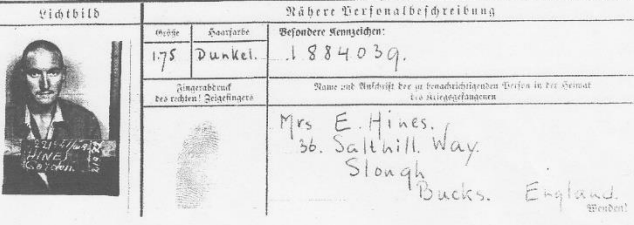 Lichtbild
Nähere Personalbeschreibung
Größe
Haarfarbe
Besondere Kennzeichen:
1.75
Dunkel.
1884039.
Fingerabdruck
des rechten! Zeigefingers
Name und Anschrift der zu benachrichtigenden Person in der Heimat
des Kriegsgefangenen
Mrs E. Hines.
36. Salthill Way.
Slough
Bucks. England.
Wenden!
HINES
Gordon